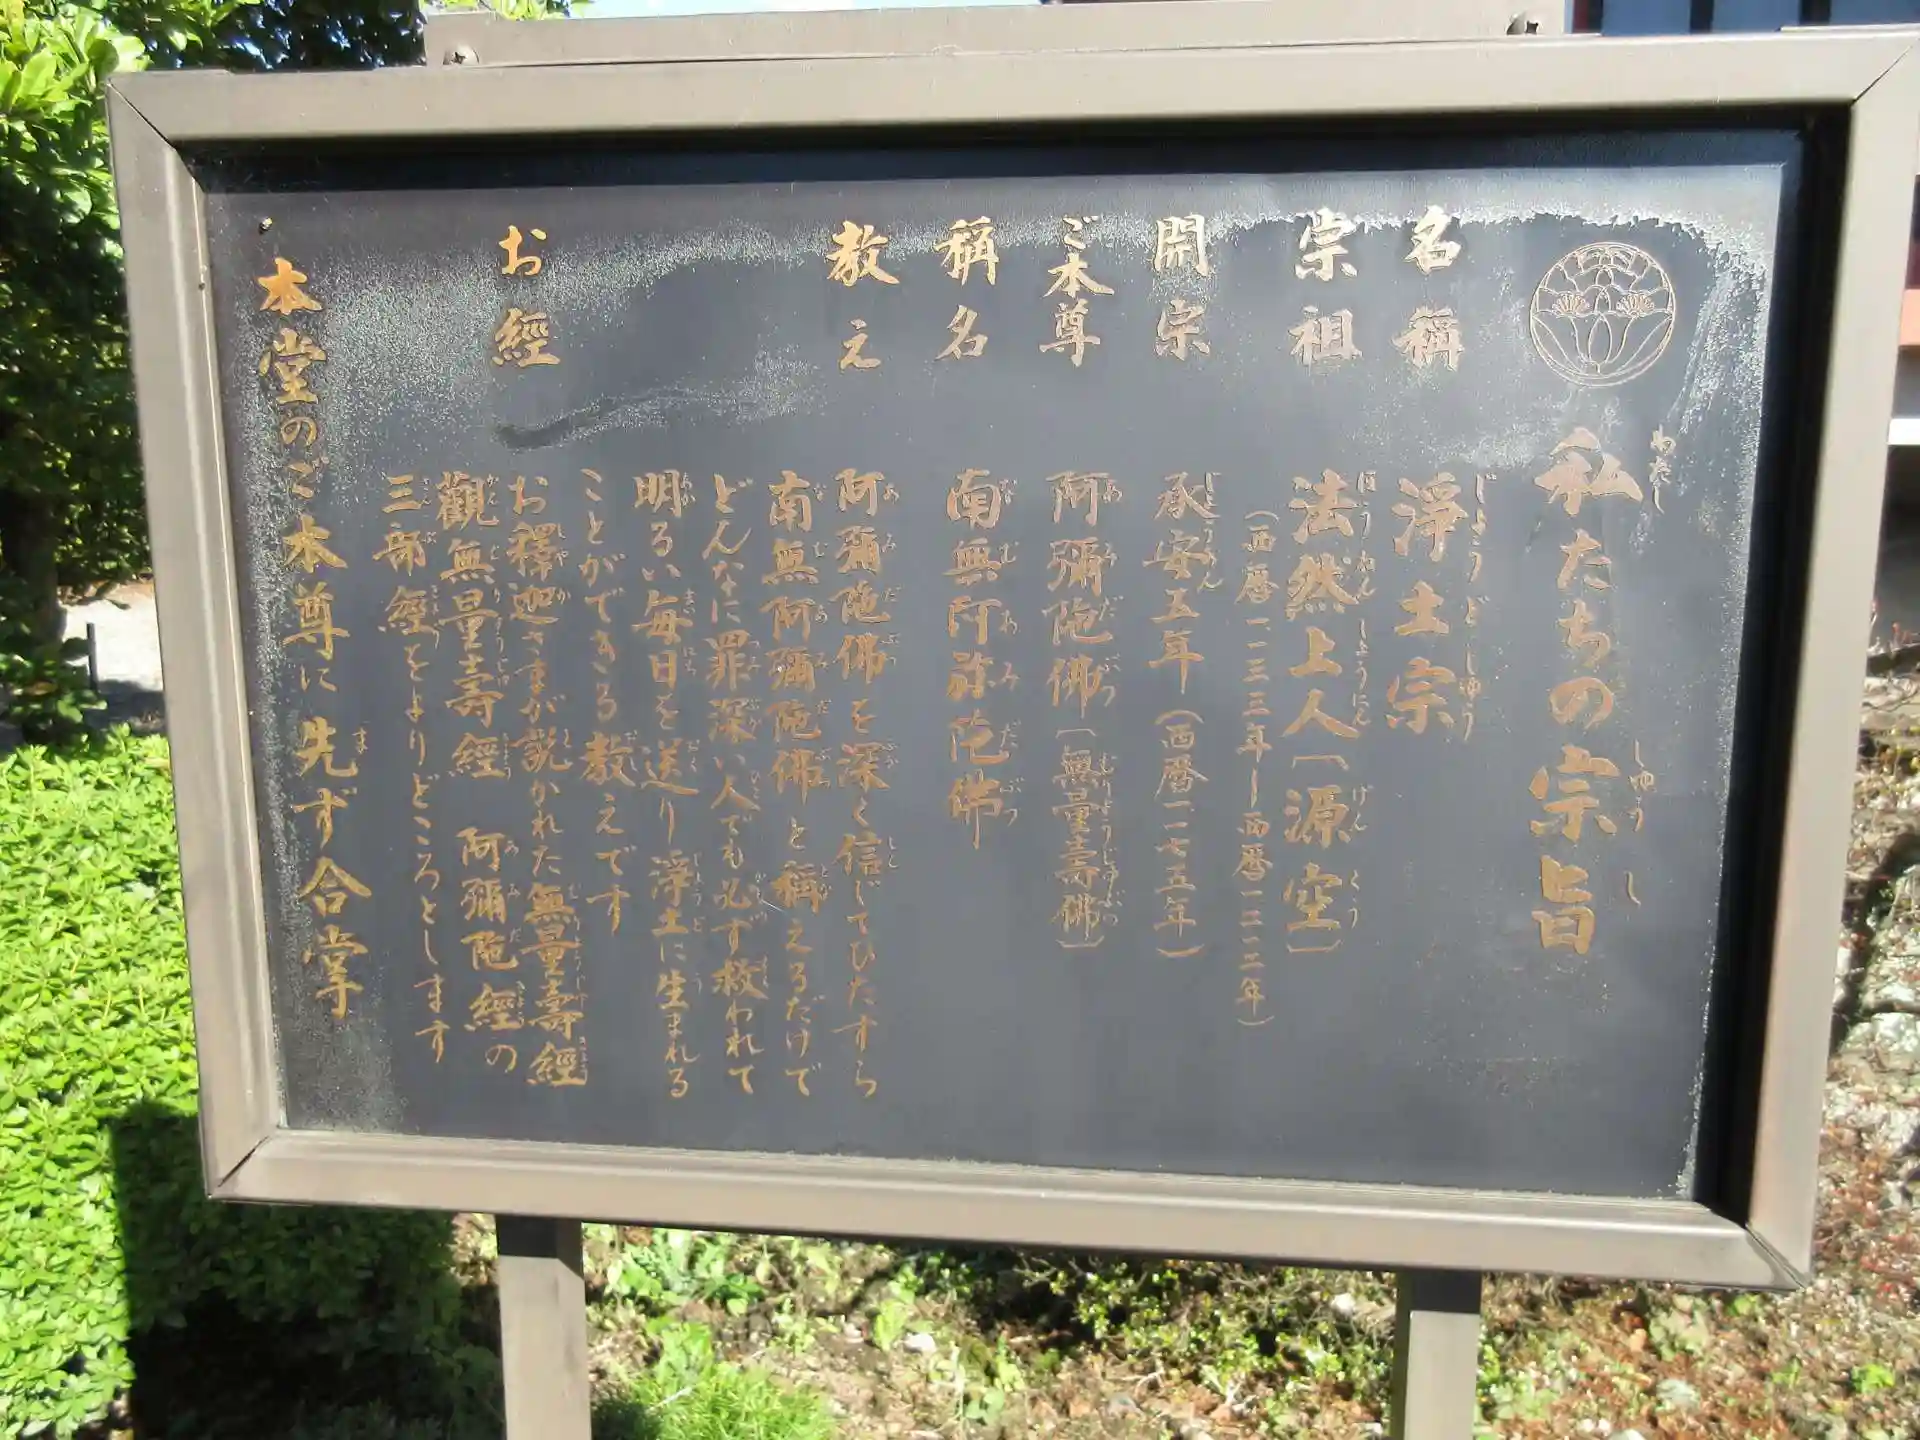 私たちの宗旨
名稱 淨土宗
宗祖 法然上人〔源空〕
(西暦一一三三年―西暦一二一二年)
開宗 承安五年(西暦一一七五年)
ご本尊 阿彌陀佛〔無量壽佛〕
稱名 南無阿弥陀佛
教え 阿彌陀佛を深く信じてひたすら
南無阿彌陀佛と稱えるだけで
どんなに罪深い人でも必ず救われて
明るい毎日を送り淨土に生まれる
ことができる教えです
お經 お釋迦さまが説かれた無量壽經
觀無量壽經 阿彌陀經の
三部經をよりどころとします
本堂のご本尊に先ず合掌